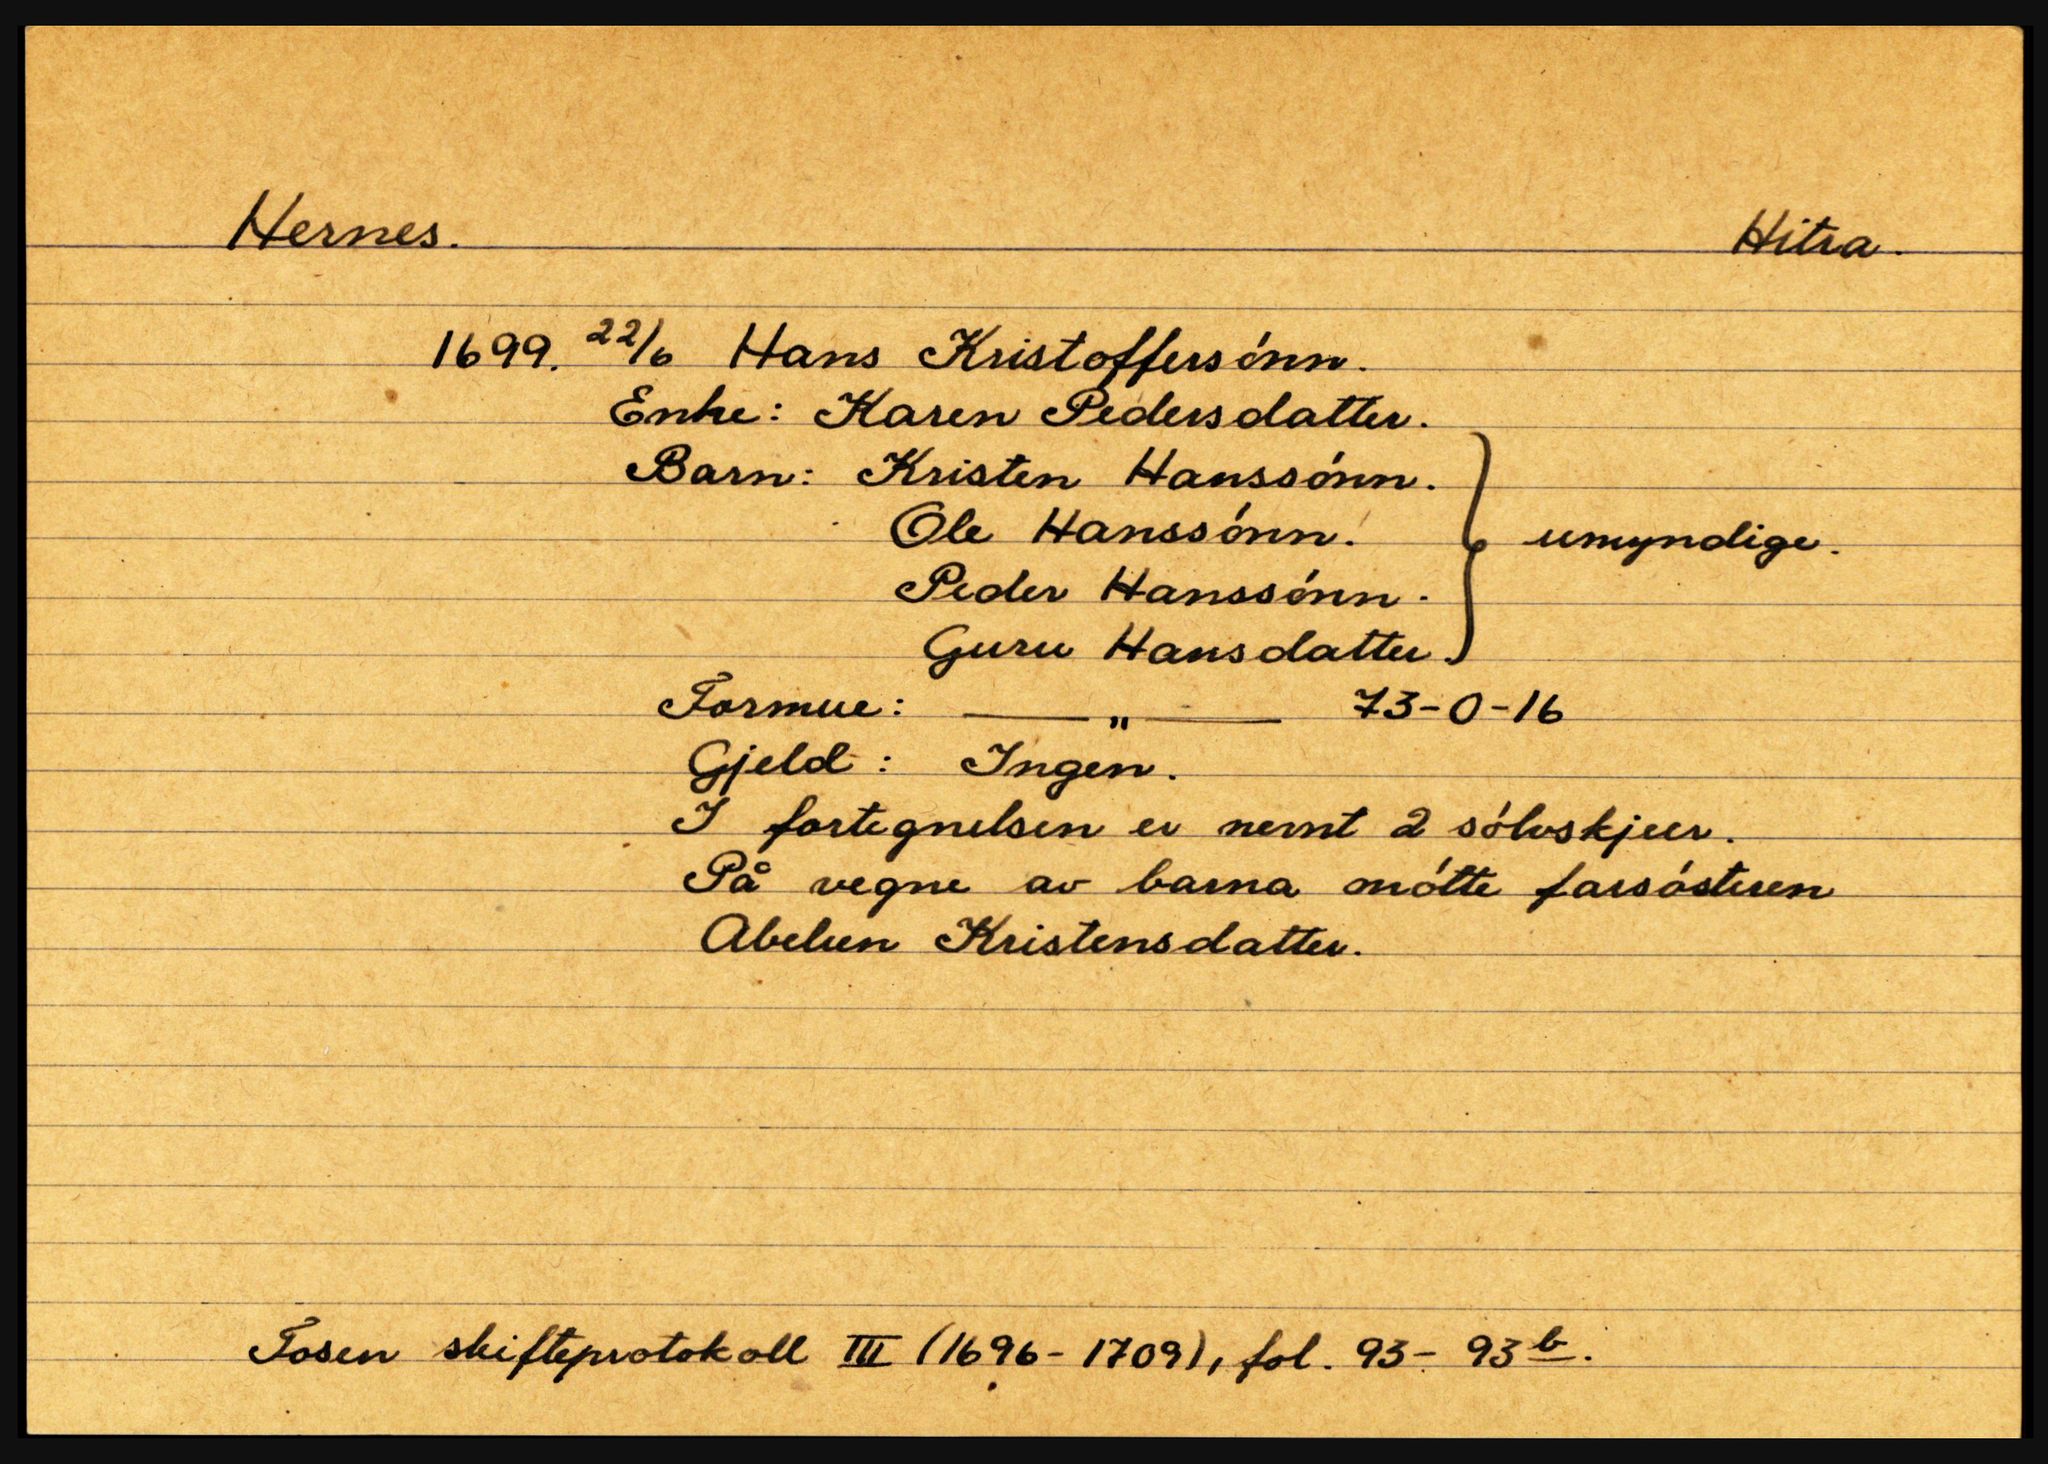 Hernes. Hitra.
1699. 22/6 Hans Kristoffersónn.
Enke: Karen Pedersdatter.
Barn: Kristen Hanssónn.
Ole Hanssónn.
Peder Hanssónn.
Guru Hansdatter. } umyndige.
Formue: —— " —— 73-0-16
Gjeld: Ingen.
I fortegnelsen er nemt 2 sólvskjeer.
På vegne av barna mótte farsósteren
Abelien Kristensdatter.
Fosen skifteprotokoll III (1696-1709), fol. 93-93b.